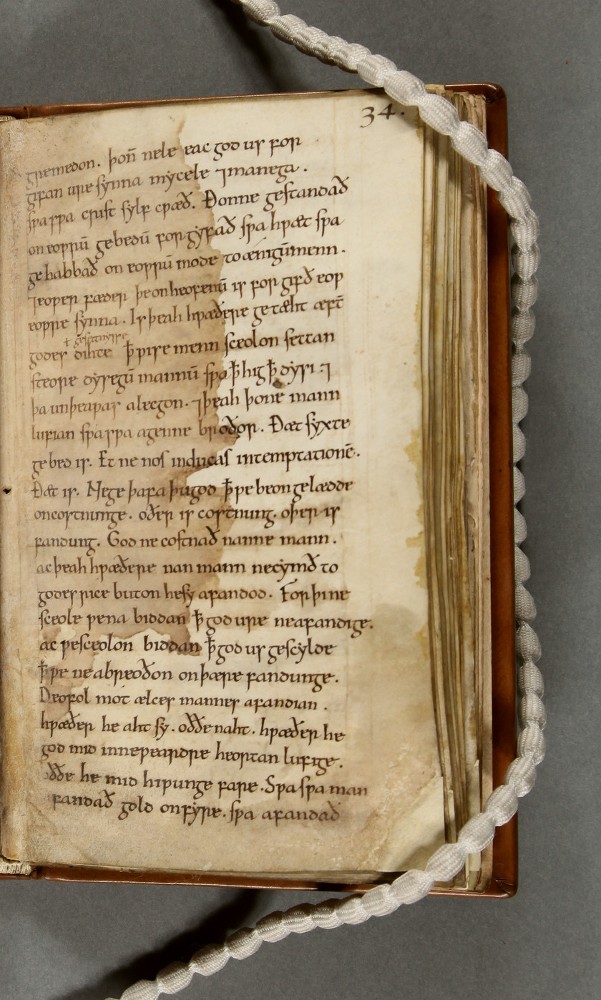 34.
gremedon. þoñ nele eac god us for
gyfan ure synna mycele ⁊ manega.
swa swa crist sylf cwæð. Ðonne gestandað
on eowrū gebedū forgyfað swa hwæt swa
ge habbað on eowrū mode to ænigū menn.
⁊ eower fæder þe on heofenū is forgifð eow
eowre synna. Is þeah hwæðere getæht æft̄
godes dihte ꝥ wise menn sceolon settan
steore dysegū mannū swa ꝥ hig ꝥ dysi ⁊
þa unþeawas alecgon. ⁊ þeah þone mann
lufian swa swa agenne broðor. Ðæt syxte
gebed is. Et ne nos inducas in temptationē.
Ðæt is. Ne geþafa þu god ꝥ we beon gelædde
on costnunge. oðer is costnung. oþer is
fandung. God ne costnað nanne mann.
ac þeah hwæðere nan mann ne cymð to
godes rice buton he sy afandod. For þi ne
sceole we na biddan ꝥ god ure ne afandige.
ac we sceolon biddan ꝥ god us gescylde
ꝥ we ne abreoðon on þære fandunge.
Deofol mot ælces mannes afandian.
hwæðer he aht sy. oððe naht. hwæðer he
god mid inneweardre heortan lufige.
oððe he mid hiwunge fare. Swa swa man
fandað gold on fyre. swa afandað